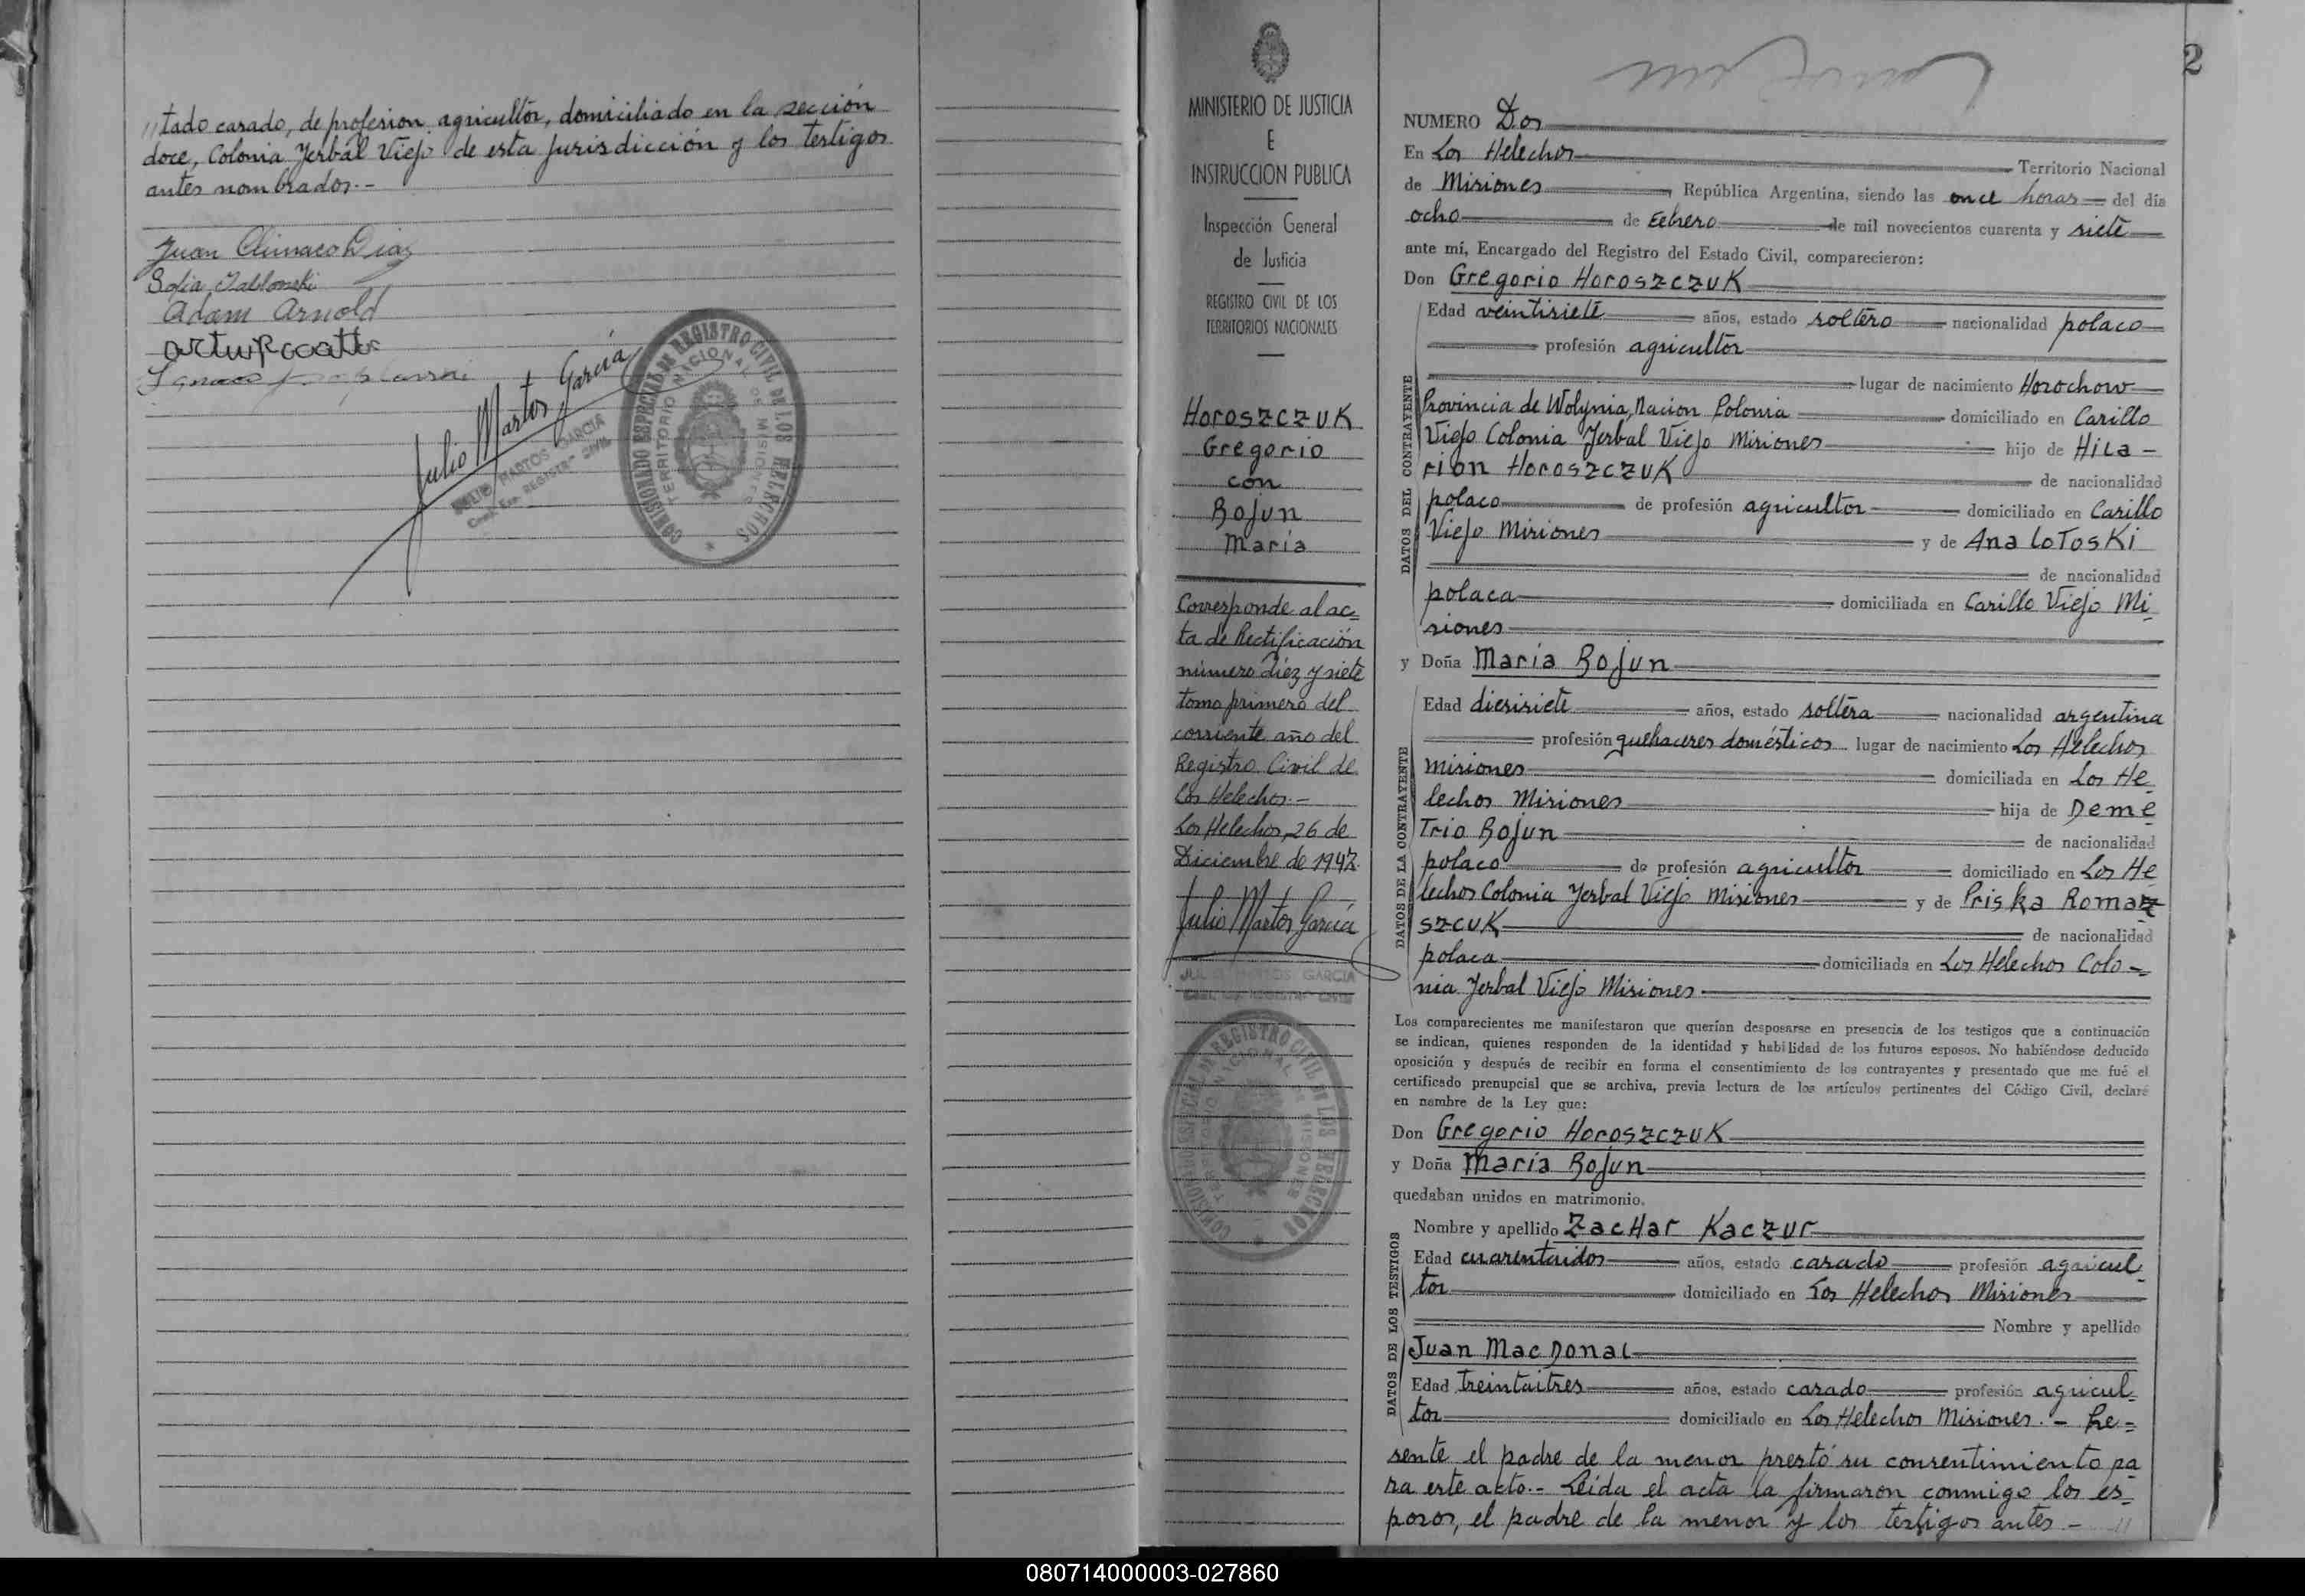 // tado casado, de profesion agricultor, domiciliado en la sección
doce, Colonia Yerbal Viejo de esta Jurisdicción y los testigos
antes nombrados.-
Juan Climaco Diaz
Sofia Jablonski
Adam Arnold
Julio Martos García
JULIO MARTOS GARCIA
REGISTRO CIVIL
COMISIONADO ESPECIAL DE REGISTRO CIVIL DE LOS HELECHOS
TERRITORIO NACIONAL DE MISIONES
MINISTERIO DE JUSTICIA
E
INSTRUCCION PUBLICA
Inspección General
de Justicia
REGISTRO CIVIL DE LOS
TERRITORIOS NACIONALES
Horoszczuk
Gregorio
con
Bojun
María
Corresponde al ac=
ta de Rectificación
número diez y siete
tomo primero del
corriente año del
Registro Civil de
Los Helechos.-
Los Helechos, 26 de
Diciembre de 1947.
Julio Martos García
JULIO MARTOS GARCIA
COMISIONADO ESPECIAL DE REGISTRO CIVIL DE LOS HELECHOS
TERRITORIO NACIONAL DE MISIONES
2
NUMERO Dos
En Los Helechos Territorio Nacional
de Misiones, República Argentina, siendo las once horas del día
ocho de Febrero de mil novecientos cuarenta y siete
ante mí, Encargado del Registro del Estado Civil, comparecieron:
Don Gregorio Horoszczuk
DATOS DEL CONTRAYENTE
Edad veintisiete años, estado soltero nacionalidad polaco
profesión agricultor
lugar de nacimiento Horochow
Provincia de Wolynia, Nacion Polonia domiciliado en Carillo
Viejo Colonia Yerbal Viejo Misiones hijo de Hila-
rion Horoszczuk de nacionalidad
polaco de profesión agricultor domiciliado en Carillo
Viejo Misiones y de Ana Lotoski
de nacionalidad
polaca domiciliada en Carillo Viejo Mi-
siones
y Doña María Bojun
DATOS DE LA CONTRAYENTE
Edad diesisiete años, estado soltera nacionalidad argentina
profesión quehaceres domésticos lugar de nacimiento Los Helechos
Misiones domiciliada en Los He-
lechos Misiones hija de Deme
trio Bojun de nacionalidad
polaco de profesión agricultor domiciliado en Los He
lechos Colonia Yerbal Viejo Misiones y de Priska Roman
szcuk de nacionalidad
polaca domiciliada en Los Helechos Colo-
nia Yerbal Viejo Misiones.
Los comparecientes me manifestaron que querían desposarse en presencia de los testigos que a continuación
se indican, quienes responden de la identidad y habilidad de los futuros esposos. No habiéndose deducido
oposición y después de recibir en forma el consentimiento de los contrayentes y presentado que me fué el
certificado prenupcial que se archiva, previa lectura de los artículos pertinentes del Código Civil, declaré
en nombre de la Ley que:
Don Gregorio Horoszczuk
y Doña María Bojun
quedaban unidos en matrimonio.
DATOS DE LOS TESTIGOS
Nombre y apellido Zachar Kaczur
Edad cuarentaidos años, estado casado profesión agricul-
tor domiciliado en Los Helechos Misiones
Nombre y apellido
Juan MacDonal
Edad treintaitres años, estado casado profesión agricul-
tor domiciliado en Los Helechos Misiones.- Pre=
sente el padre de la menor prestó su consentimiento pa-
ra este acto.- Leida el acta la firmaron conmigo los es-
posos, el padre de la menor y los testigos antes- //
080714000003-027860